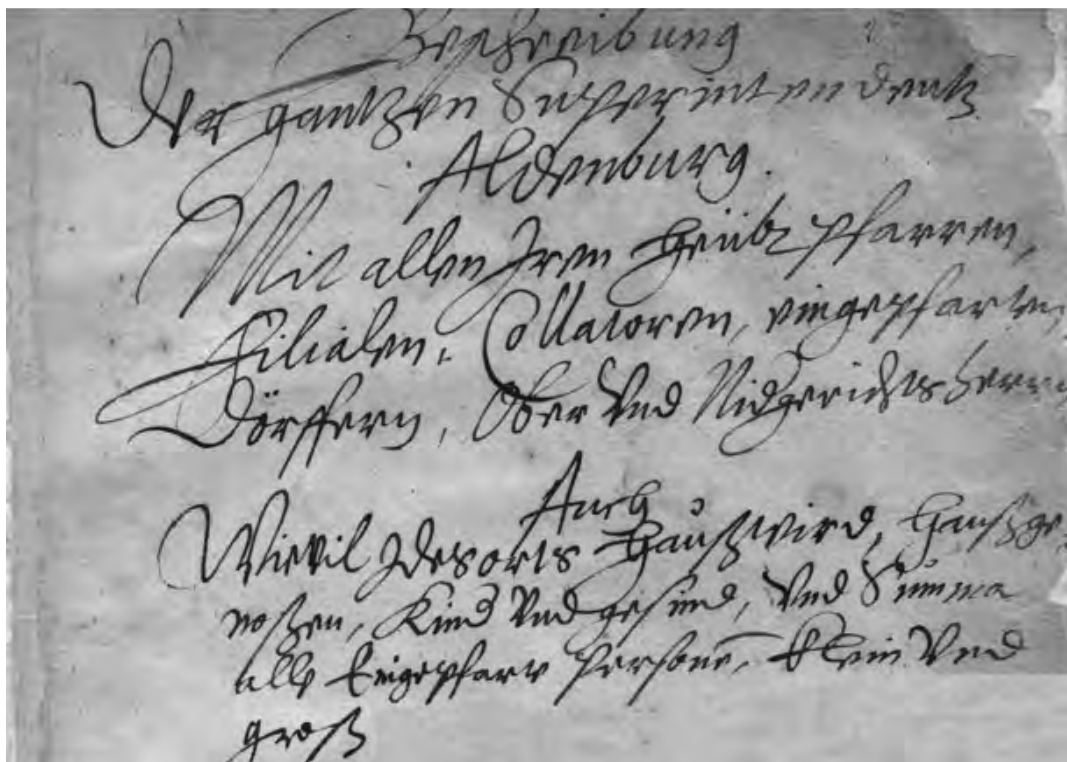 Beschreibung
Der gantzen Superintendentz
Aldenburg.
Mit allen Iren Heubt pfarren,
Filialen, Collatoren, eingepfarten,
Dörffern, Ober Vnd Nidgerichtsherrn
Auch
Wieuil Jdesorts Haußwird, Haußge-
noßen, Kind Vnd gesind, Vnd Summa
alle Eingepfarte Personē, Klein Vnd
groß